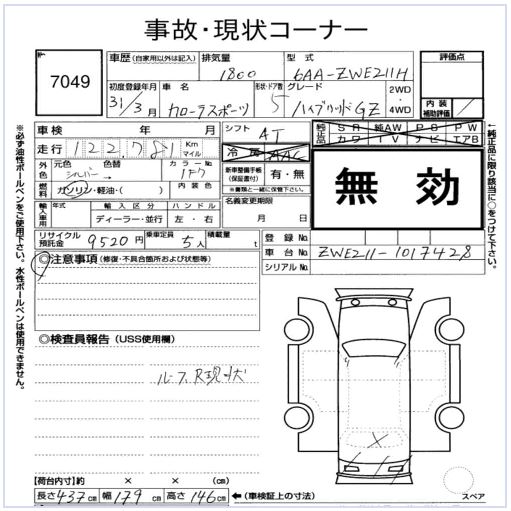 事故・現状コーナー
7049
車歴 (自家用以外は記入) 排気量 1800 型式 6AA-ZWE211H
評価点
初度登録年月 31/3月 車名 カローラスポーツ 形状・ドア数 5 グレード ハイブリッドGZ 2WD・4WD
内装補助評価
車検 年 月
シフト AT
純正品 SR 純AW PS PW
カワ TV ナビ エアB
走行 122,781 Km マイル
冷房 AAC
外色 元色 シルバー → 色替 カラーNo 1F7
新車整備手帳(保証書付) 有・無
※書類と一緒に保管下さい。
無効
燃料 ガソリン・軽油・( ) 内装色
名義変更期限
月 日
輸入車用 年式 輸入区分 ハンドル
ディーラー・並行 左・右
リサイクル預託金 9520円 乗車定員 5人 積載量 t
登録No.
車台No. ZWE211-1017428
シリアルNo.
◎注意事項 (修復・不具合箇所および状態等)
◎検査員報告 (USS使用欄)
ルーフ、R現状
【荷台内寸】約 × 約 × 約
長さ 437cm 幅 179cm 高さ 146cm ←(車検証上の寸法)
スペア
※必ず油性ボールペンをご使用下さい。水性ボールペンは使用できません。
←純正品に限り該当に○をつけて下さい。